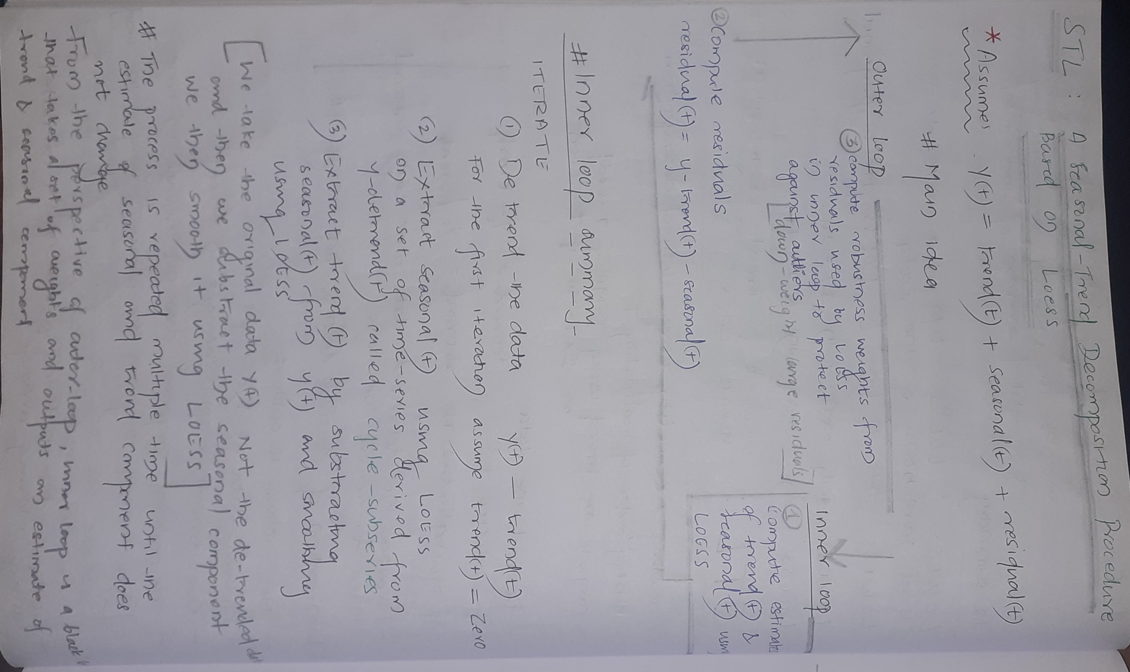 STL : A Seasonal-Trend Decomposition Procedure
Based on Loess
* Assume: Y(t) = trend(t) + seasonal(t) + residual(t)
# Main idea
Outer loop
③ compute robustness weights from
residuals used by LOESS
in inner loop to protect
against outliers
[down-weight large residuals]
Inner loop
①
Compute estimate
of trend(t) &
seasonal(t) using
LOESS
② Compute residuals
residual(t) = y - trend(t) - seasonal(t)
# Inner loop summary
ITERATE
① De trend the data Y(t) - trend(t)
For the first iteration assume trend(t) = Zero
② Extract seasonal(t) using LOESS
on a set of time-series derived from
y-detrend(t) called cycle-subseries
③ Extract trend(t) by substracting
seasonal(t) from y(t) and smoothing
using LOESS
[We take the original data Y(t) Not the de-trended
and then we substract the seasonal component
we then smooth it using LOESS]
# The process is repeated multiple time until the
estimate of seasonal and trend component does
not change
From the perspective of outer-loop, inner loop is a black
that takes a set of weights and outputs an estimate of
trend & seasonal component